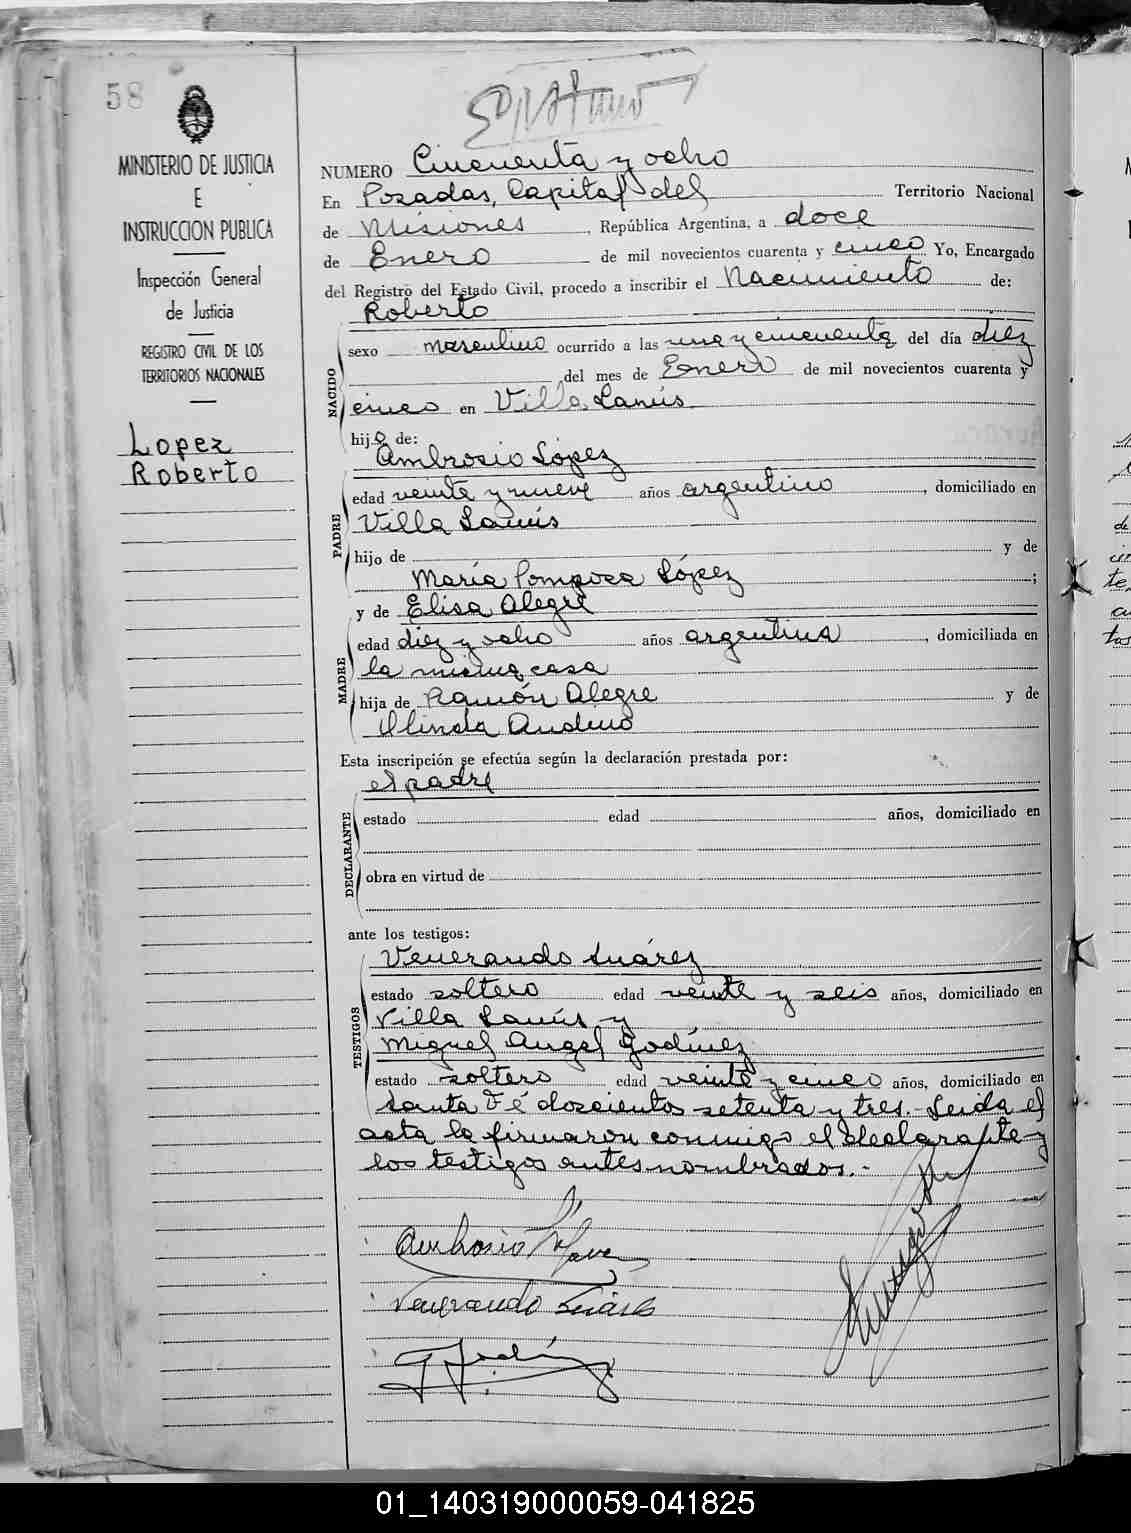 58
MINISTERIO DE JUSTICIA
E
INSTRUCCION PUBLICA
Inspección General
de Justicia
REGISTRO CIVIL DE LOS
TERRITORIOS NACIONALES
Lopez
Roberto
NUMERO Cincuenta y ocho
En Posadas, Capital del Territorio Nacional
de Misiones, República Argentina, a doce
de Enero de mil novecientos cuarenta y cinco Yo, Encargado
del Registro del Estado Civil, procedo a inscribir el Nacimiento de:
Roberto
NACIDO
sexo masculino ocurrido a las una y cincuenta del día diez
del mes de Enero de mil novecientos cuarenta y
cinco en Villa Lanús
hijo de:
Ambrosio López
PADRE
edad veinte y nueve años argentino, domiciliado en
Villa Lanús
hijo de y de
María Pomposa López;
y de Elisa Alegre
MADRE
edad diez y ocho años argentina, domiciliada en
la misma casa
hija de Ramón Alegre y de
Olinda Andino
Esta inscripción se efectúa según la declaración prestada por:
el padre
DECLARANTE
estado edad años, domiciliado en
obra en virtud de
ante los testigos:
Venerando Suárez
TESTIGOS
estado soltero edad veinte y seis años, domiciliado en
Villa Lanús y
Miguel Angel Godínez
estado soltero edad veinte y cinco años, domiciliado en
Santa Fé doscientos setenta y tres.- Leida el
acta la firmaron conmigo el declarante y
los testigos antes nombrados.-
Ambrosio
Venerando Suárez
01_140319000059-041825